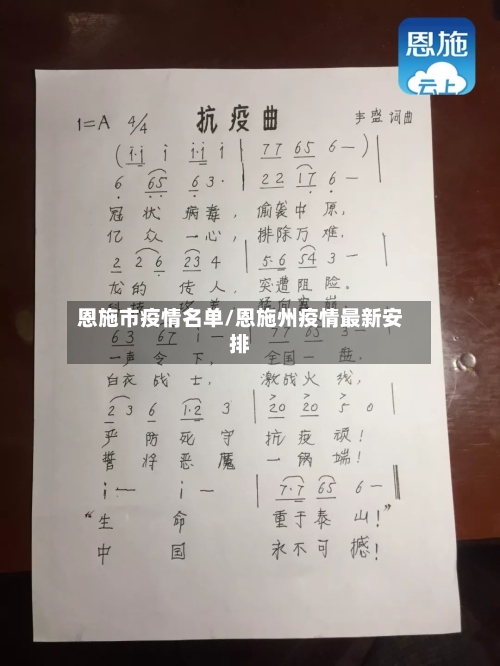 恩施
云上
1=A 4/4 抗疫曲 李盛 词曲
(i·i i i·i i | 77 65 6 — )
6 65 6 3· | 22 17 6 — |
冠状病毒,偷袭中原,
亿众一心,排除万难。
2 26 23 4 | 5·6 54 3 — |
龙的传人,突遭阻险。
恩施市疫情名单/恩施州疫情最新安
排
63 67
一声令下,全国一
白衣战士,激战火线,
23 6 1·2 3 | 20 20 5 0 |
严防死守抗疫顽!
誓将恶魔一锅端!
i — i — | 7·7 65 6 — ‖
“生命重于泰山!”
中国永不可撼!